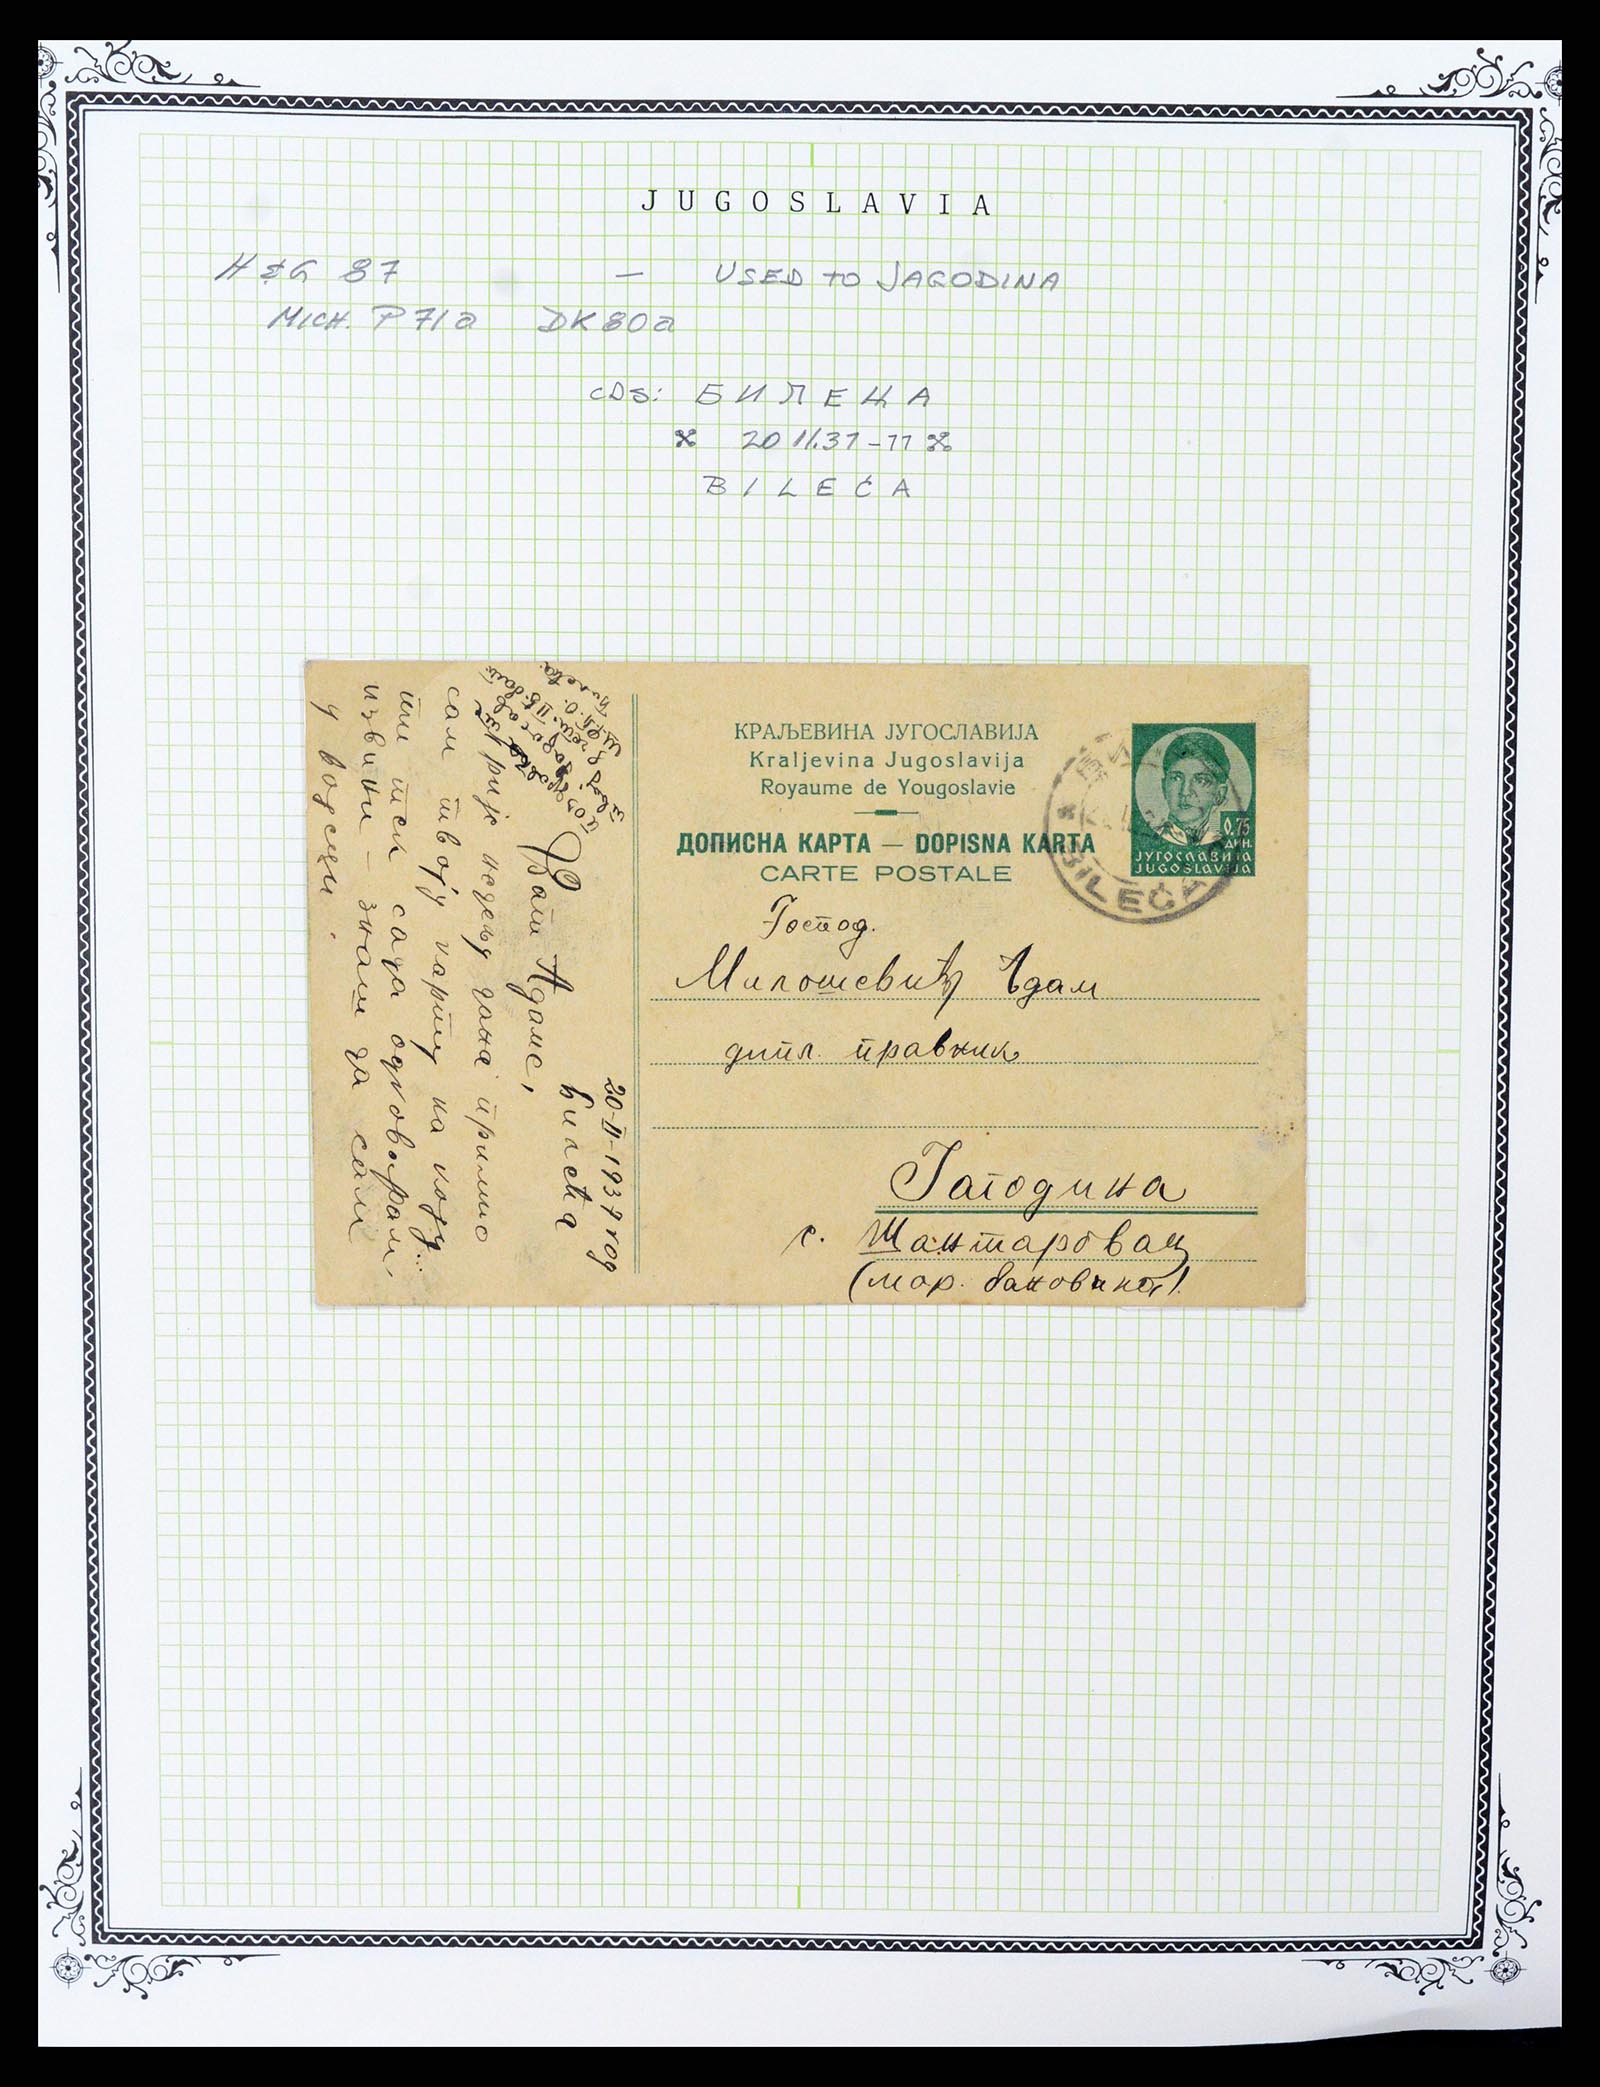 JUGOSLAVIA
H&G 87 — USED TO JAGODINA
MICH. P71a DK80a
CDS: БИЛЕЋА
※ 20 11.37-11 ※
BILEĆA
КРАЉЕВИНА ЈУГОСЛАВИЈА
Kraljevina Jugoslavija
Royaume de Yougoslavie
ДОПИСНА КАРТА — DOPISNA KARTA
CARTE POSTALE
0.75
ДИН.
ЈУГОСЛАВИЈА
JUGOSLAVIJA
BILEĆA
Господ.
Милошевић Адам
дипл. правник
Јагодина
с. Шантаровац
(мор. бановина).
20-II-1937 год
Билећа
Брат Адаме,
Прије недељу дана примио
сам твоју карту на којој
ти тек сада одговарам,
извини – знаш да сам
у војсци.